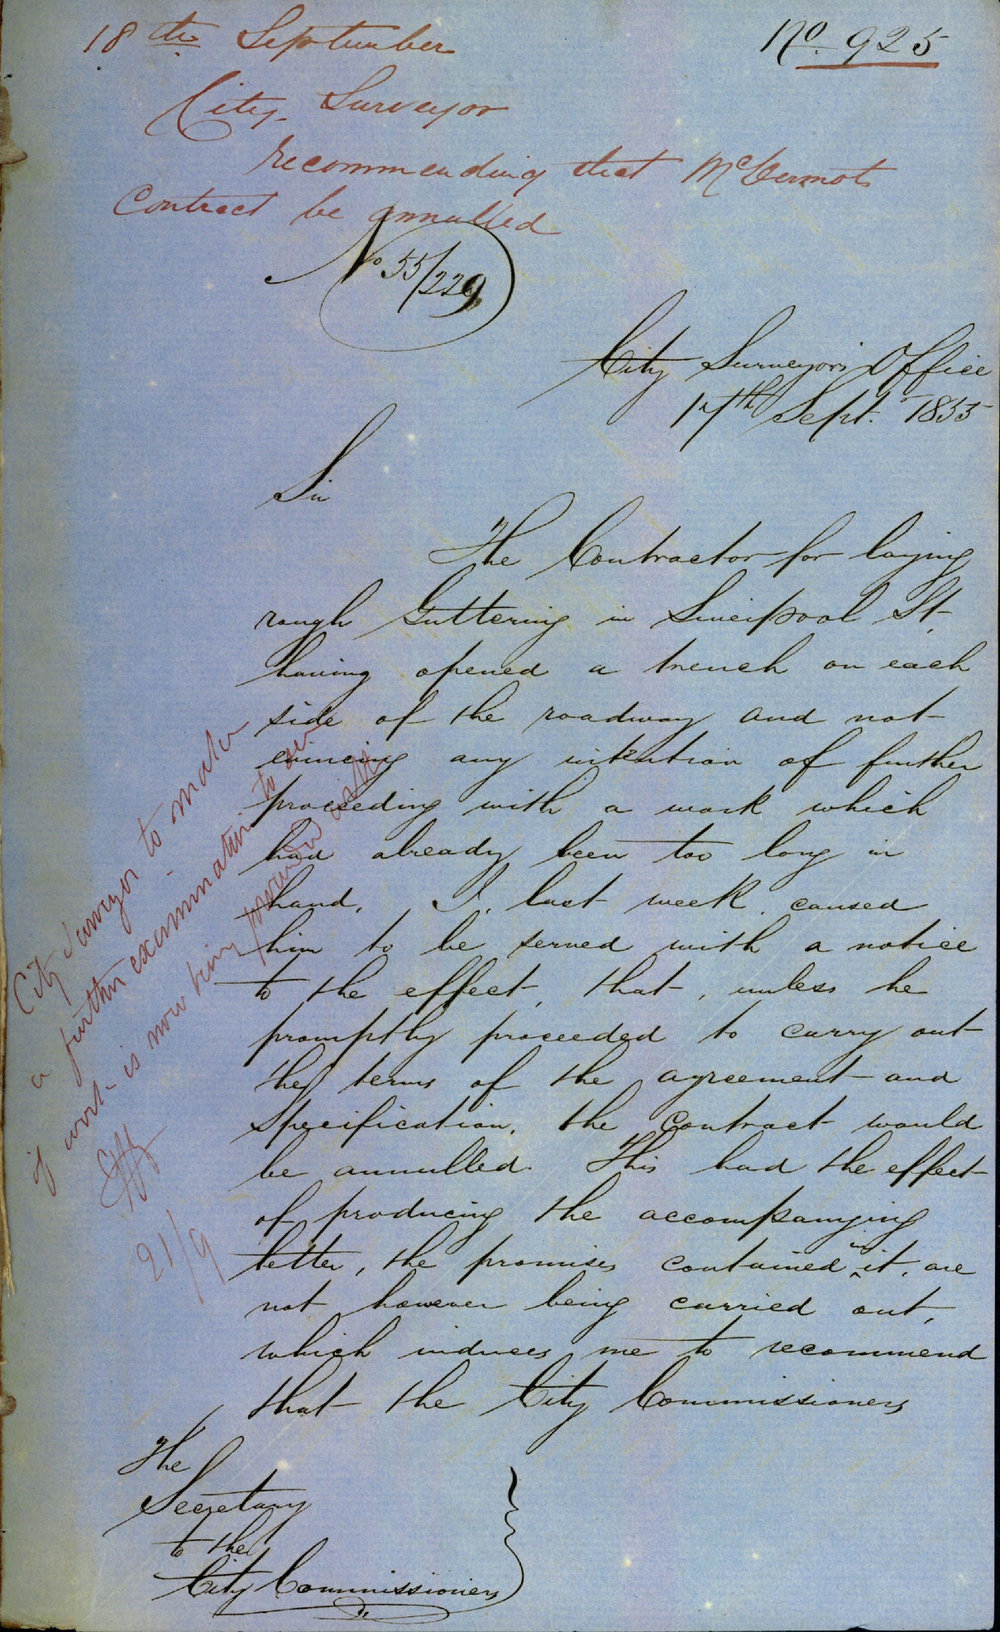 18th September
No. 925
City Surveyor
recommending that McDermots
Contract be annulled
No 55/229
City Surveyor's Office
17th Sept. 1855
Sir
The Contractor for laying
rough Guttering in Liverpool St.
having opened a trench on each
side of the roadway and not
evincing any intention of further
proceeding with a work which
had already been too long in
hand, I, last week, caused
him to be served with a notice
to the effect, that, unless he
promptly proceeded to carry out
the terms of the agreement and
specification, the contract would
be annulled. This had the effect
of producing the accompanying
letter, the promises contained in it, are
not however being carried out,
which induces me to recommend
that the City Commissioners
The
Secretary
to the
City Commissioners
City Surveyor to make
a further examination to see
if work is now being proceeded with
21/9